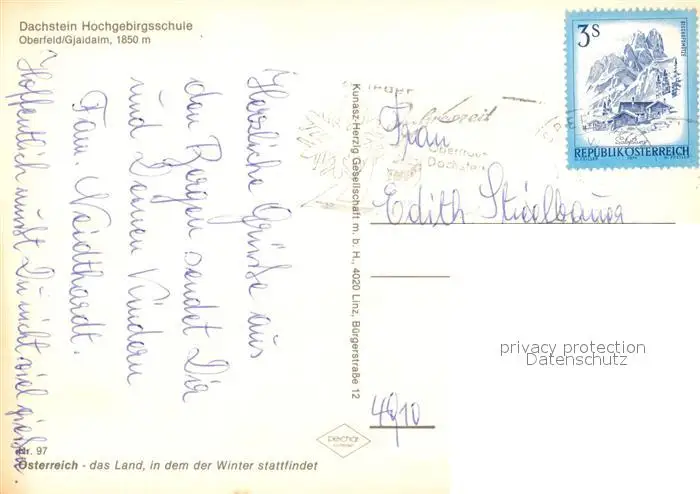 Dachstein Hochgebirgsschule
Oberfeld/Gjaidalm, 1850 m
Herzliche Grüße aus
den Bergen sendet Dir
und Deinen Kindern
Fam. Neidthardt.
Hoffentlich mußt Du nicht viel gießen.
Nr. 97
Österreich - das Land, in dem der Winter stattfindet
Kunasz-Herzig Gesellschaft m. b. H., 4020 Linz, Bürgerstraße 12
3S
BISCHOFSMÜTZE
REPUBLIK ÖSTERREICH
Obertraun
Dachstein
Frau
Edith
4810
privacy protection
Datenschutz